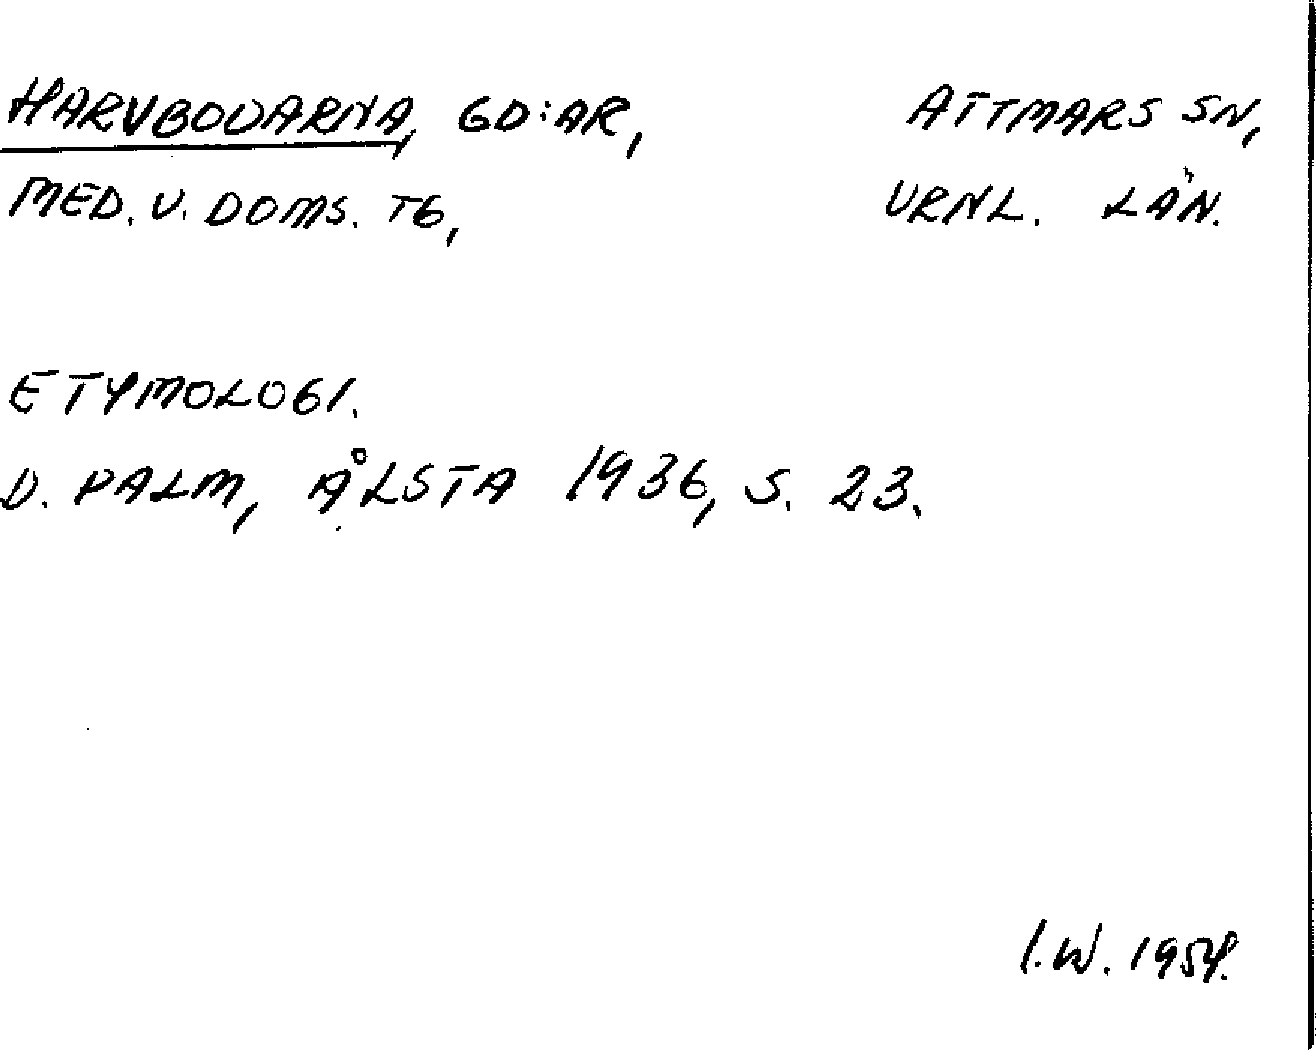 HARVBOVARNA, GD:AR, ATTMARS SN,
MED. V. DOMS. TG, VRNL. LÄN.
ETYMOLOGI.
D. PALM, ÅLSTA 1936, S. 23.
I.W. 1954.